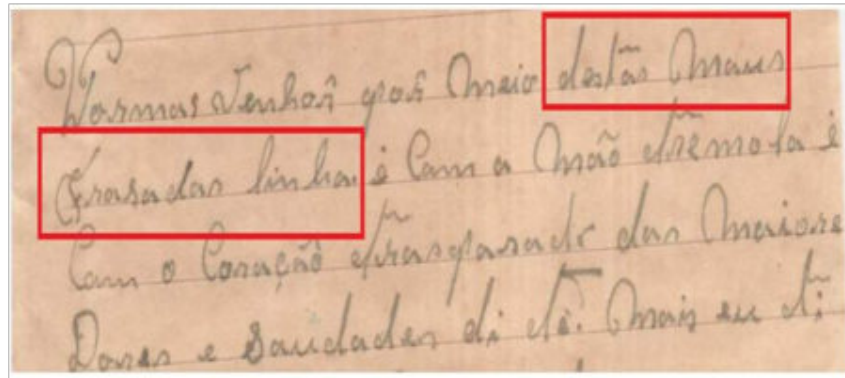 Normas Venhoñ por meio destãs maus
trasadas linha é Com a mão trêmola é
Com o Coração trãsparado das maiore
Dores e Saudades di tẽ. mais eu ti